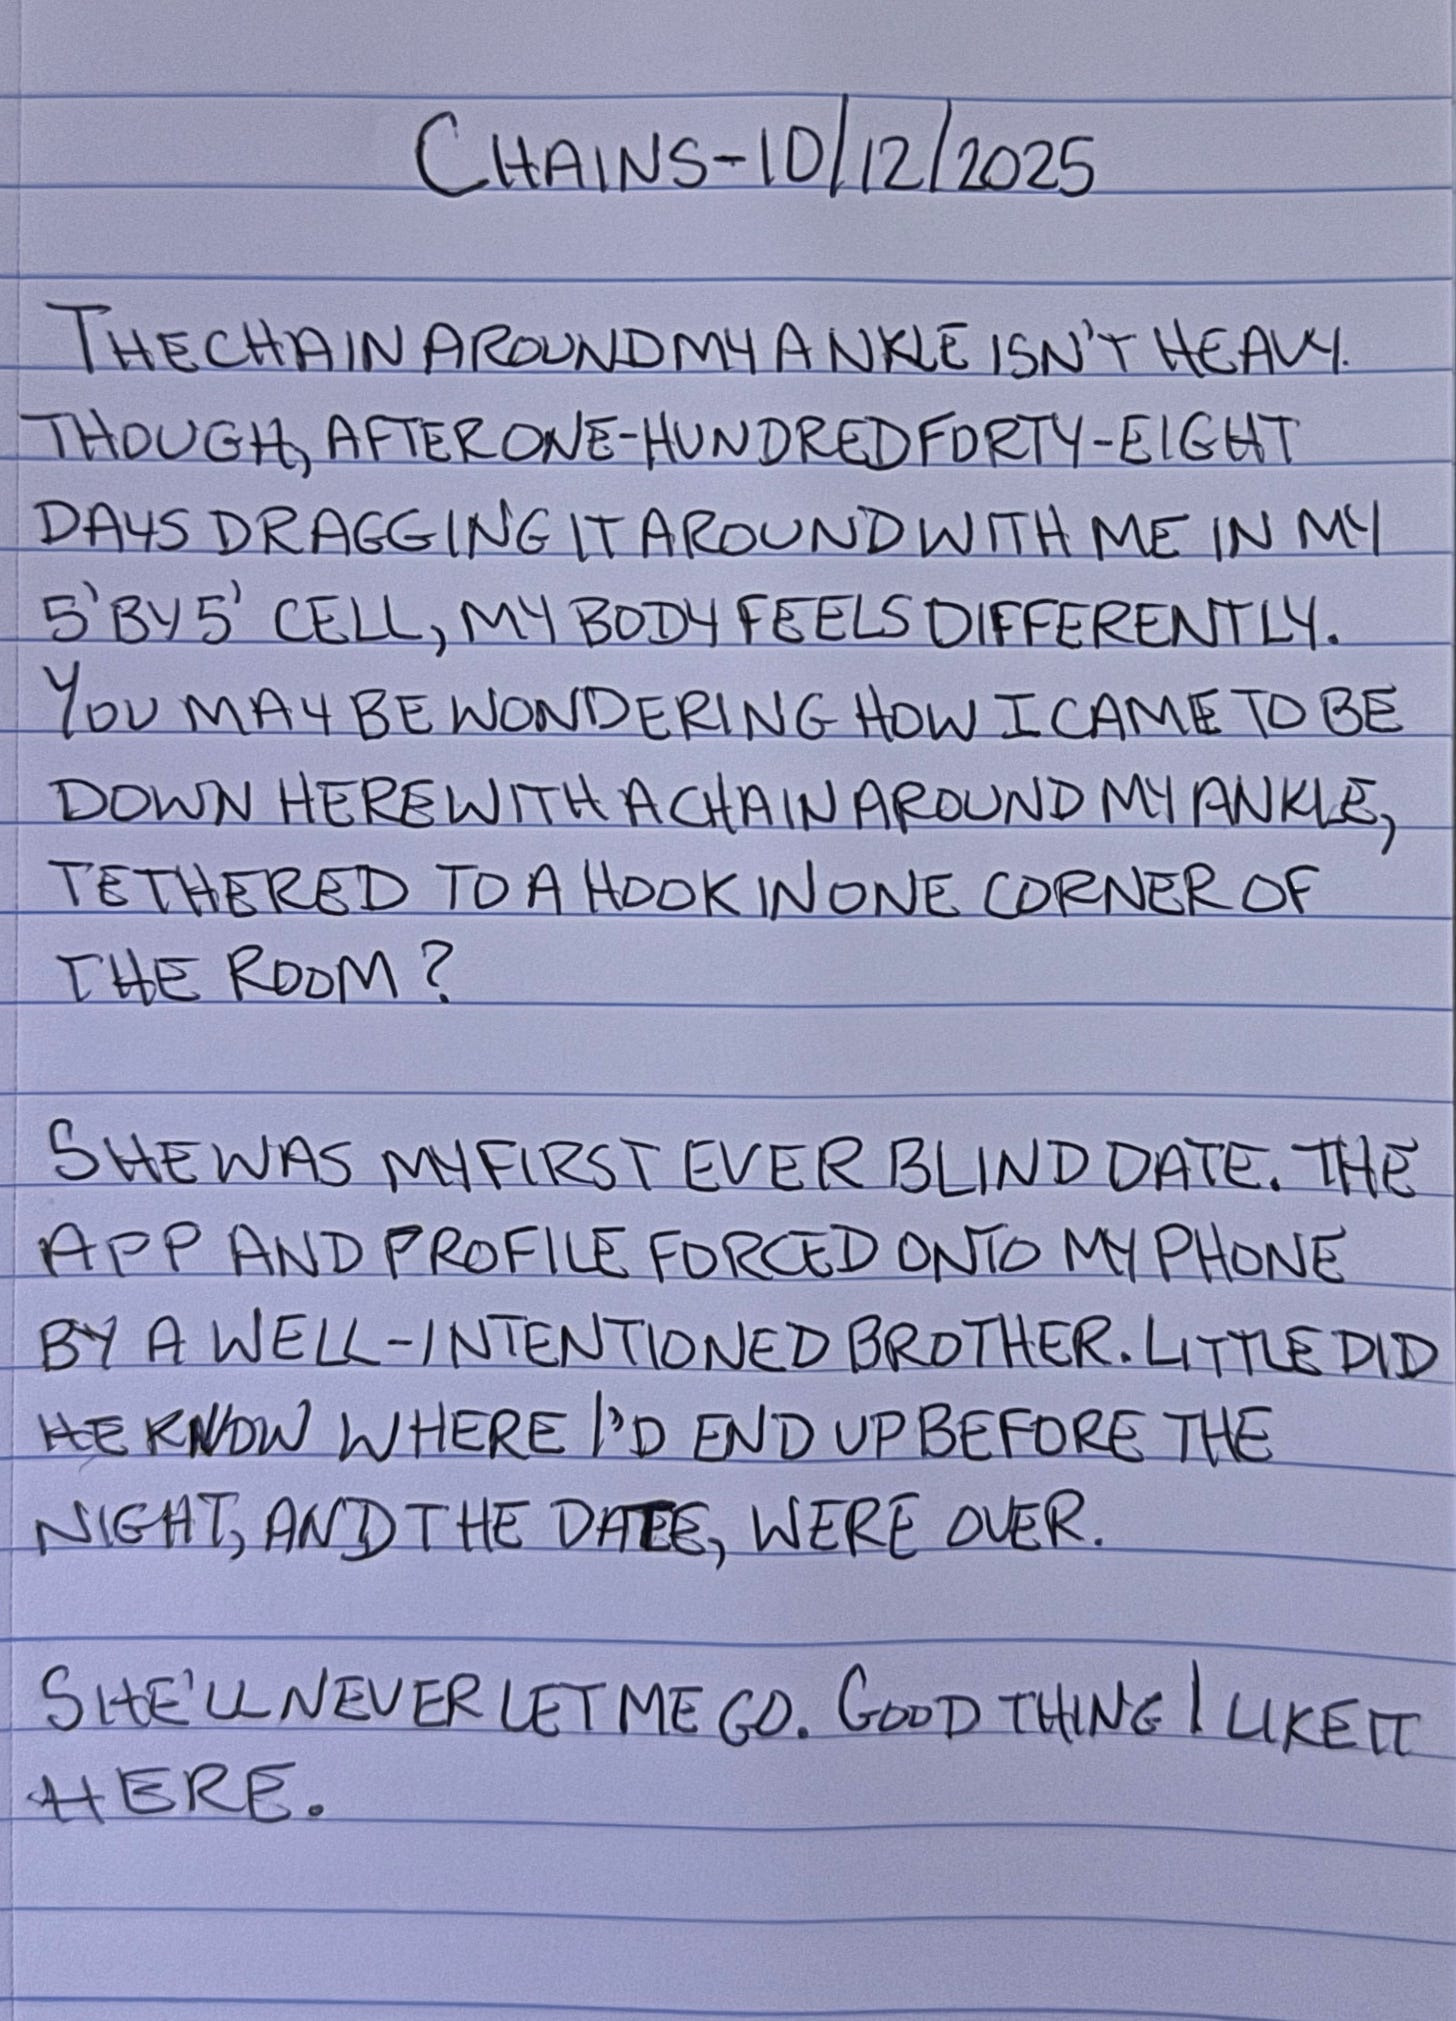 CHAINS-10/12/2025
THE CHAIN AROUND MY ANKLE ISN'T HEAVY.
THOUGH, AFTER ONE-HUNDRED FORTY-EIGHT
DAYS DRAGGING IT AROUND WITH ME IN MY
5' BY 5' CELL, MY BODY FEELS DIFFERENTLY.
YOU MAY BE WONDERING HOW I CAME TO BE
DOWN HERE WITH A CHAIN AROUND MY ANKLE,
TETHERED TO A HOOK IN ONE CORNER OF
THE ROOM?
SHE WAS MY FIRST EVER BLIND DATE. THE
APP AND PROFILE FORCED ONTO MY PHONE
BY A WELL-INTENTIONED BROTHER. LITTLE DID
HE KNOW WHERE I'D END UP BEFORE THE
NIGHT, AND THE DATE, WERE OVER.
SHE'LL NEVER LET ME GO. GOOD THING I LIKE IT
HERE.